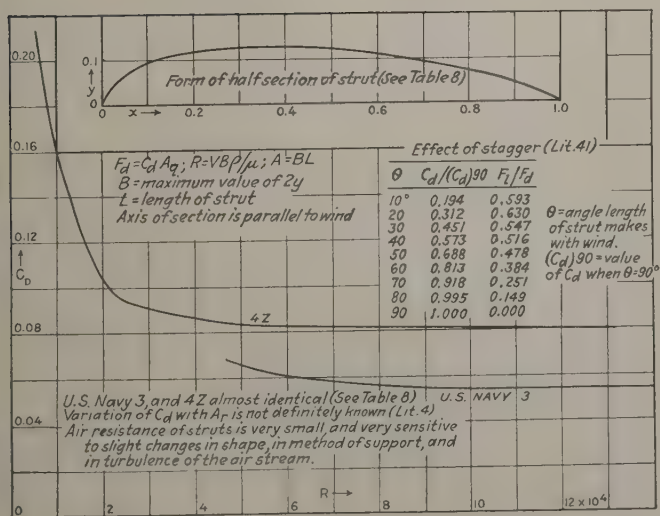 0.20
0.16
0.12
↑
C_D
0.08
0.04
0
0.1
↑
y
0
x →
0.2
0.4
0.6
0.8
1.0
Form of half section of strut (See Table 8)
F_d = C_d A_q; R = VBρ/μ; A = BL
B = maximum value of 2y
L = length of strut
Axis of section is parallel to wind
Effect of stagger (Lit. 41)
θ C_d/(C_d)90 F_l/F_d
10° 0.194 0.593
20 0.312 0.630
30 0.451 0.547
40 0.573 0.516
50 0.688 0.478
60 0.813 0.384
70 0.918 0.251
80 0.995 0.149
90 1.000 0.000
θ = angle length
of strut makes
with wind.
(C_d)90 = value
of C_d when θ = 90°
4Z
U.S. NAVY 3
U.S. Navy 3, and 4Z almost identical (See Table 8)
Variation of C_d with A_r is not definitely known (Lit. 4)
Air resistance of struts is very small, and very sensitive
to slight changes in shape, in method of support, and
in turbulence of the air stream.
2
4
R →
6
8
10
12 x 10⁴